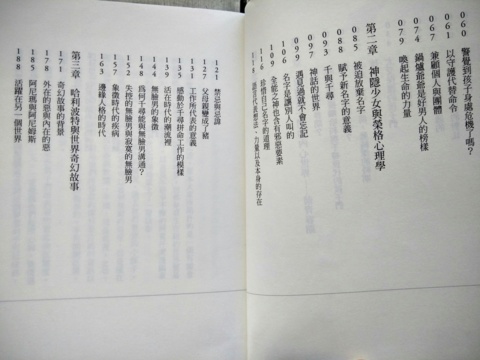 060 警覺到孩子身處危機了嗎？
061 以守護代替命令
067 兼顧個人與團體
074 鍋爐爺爺是好男人的榜樣
079 喚起生命的力量
第二章 神隱少女與榮格心理學
085 被迫放棄名字
088 賦予新名字的意義
093 千與千尋
097 神話的世界
099 遇見過就不會忘記
106 名字是讓別人叫的
109 全能之神也含有邪惡要素
116 珍惜自己名字的道理
121 禁忌與忌諱
127 父母親變成了豬
131 工作所代表的意義
135 感動於千尋拼命工作的模樣
139 活在時代的潮流裡
142 無臉男的象徵
148 為何千尋能與無臉男溝通？
152 失控的無臉男與寂寞的無臉男
157 象徵時代的疾病
163 邊緣人格的時代
第三章 哈利波特與世界奇幻故事
171 奇幻故事的背景
178 外在的惡與內在的惡
185 阿尼瑪與阿尼姆斯
188 活躍在另一個世界